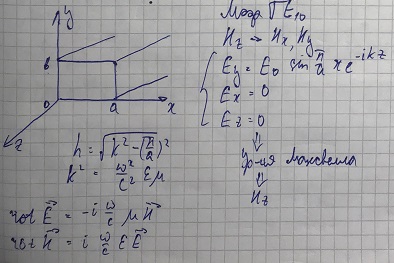 y
b
0
a
x
z
Мода ГE₁₀
H_z → H_x, H_y
E_y = E_0 sin π/a x e^{-ikz}
E_x = 0
E_z = 0
⇓
Ур-ия Максвелла
⇓
H_z
h = √(k² - (π/a)²)
k² = ω²/c² εμ
rot E⃗ = -i ω/c μ H⃗
rot H⃗ = i ω/c ε E⃗